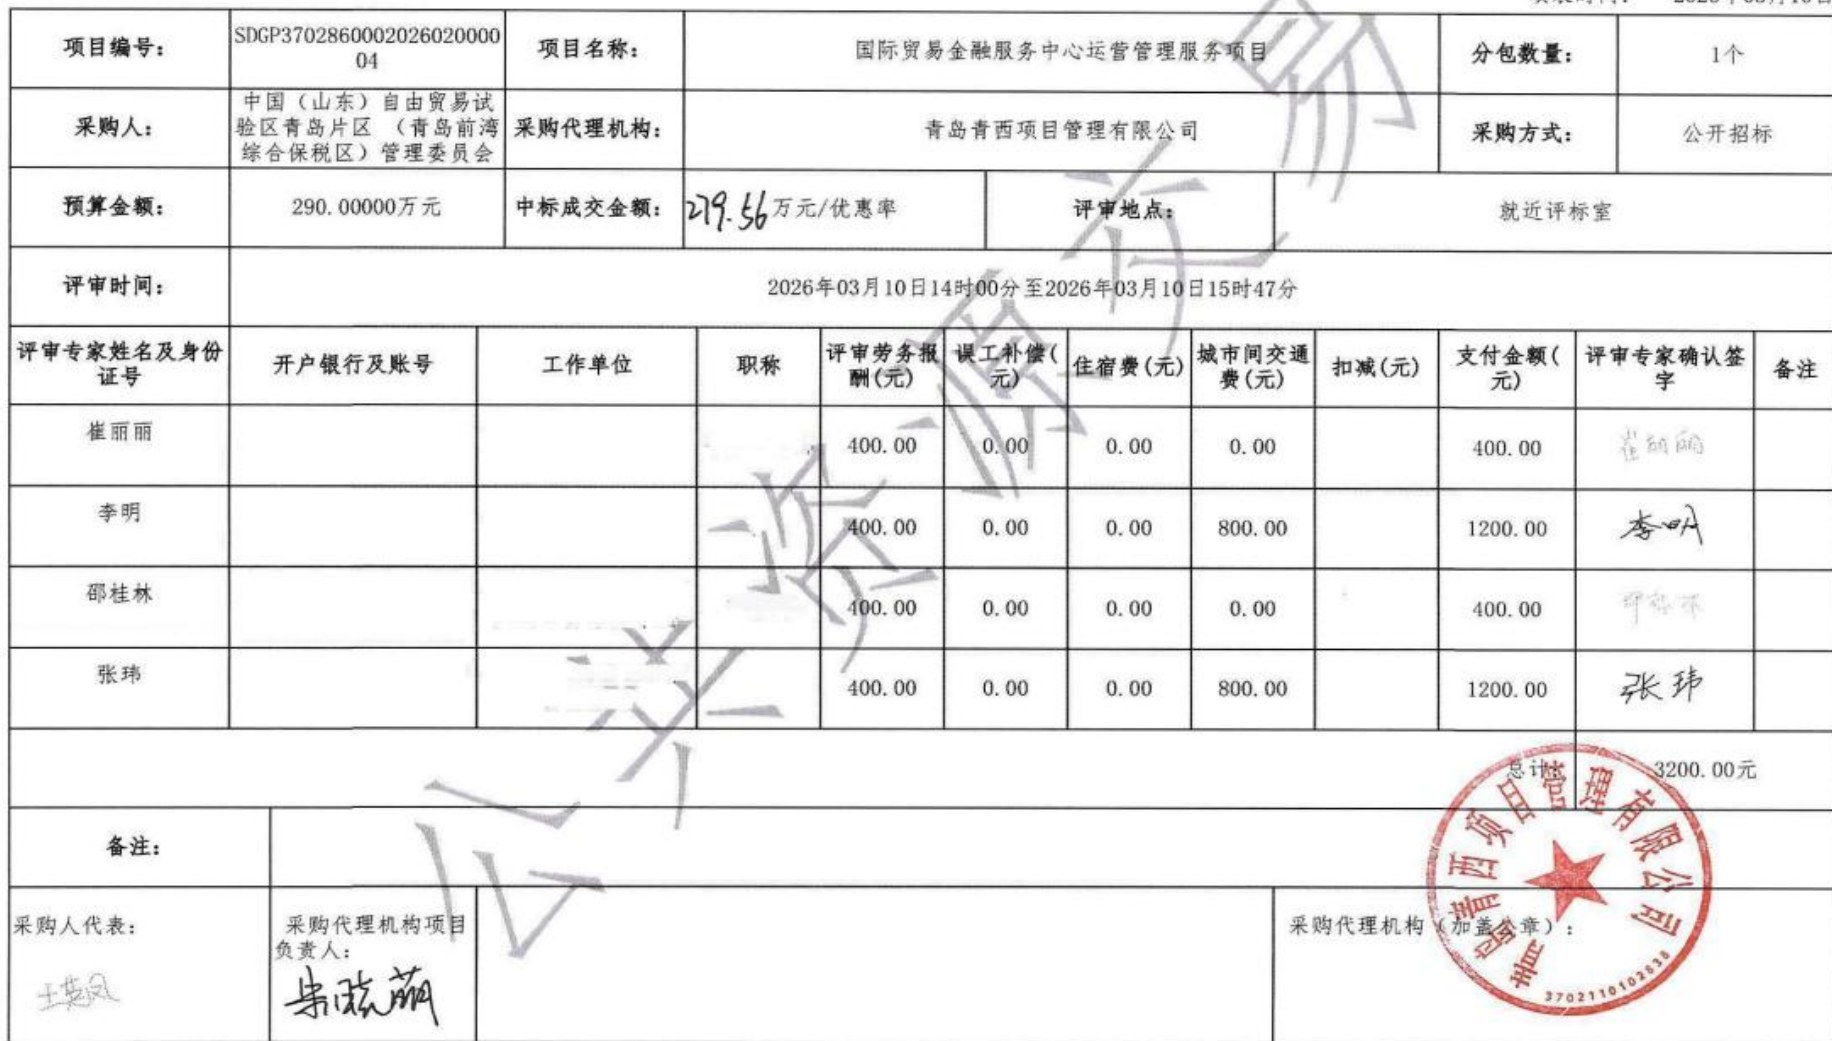 项目编号： SDGP370286000202602000004 项目名称： 国际贸易金融服务中心运营管理服务项目 分包数量： 1个
采购人： 中国（山东）自由贸易试验区青岛片区 （青岛前湾综合保税区）管理委员会 采购代理机构： 青岛青西项目管理有限公司 采购方式： 公开招标
预算金额： 290.00000万元 中标成交金额： 279.56万元/优惠率 评审地点： 就近评标室
评审时间： 2026年03月10日14时00分至2026年03月10日15时47分
评审专家姓名及身份证号 开户银行及账号 工作单位 职称 评审劳务报酬(元) 误工补偿(元) 住宿费(元) 城市间交通费(元) 扣减(元) 支付金额(元) 评审专家确认签字 备注
崔丽丽 400.00 0.00 0.00 0.00 400.00 崔丽丽
李明 400.00 0.00 0.00 800.00 1200.00 李明
邵桂林 400.00 0.00 0.00 0.00 400.00 邵桂林
张玮 400.00 0.00 0.00 800.00 1200.00 张玮
总计： 3200.00元
备注：
采购人代表： 采购代理机构项目负责人： 采购代理机构（加盖公章）：
青岛青西项目管理有限公司
3702110102638
公共资源交易